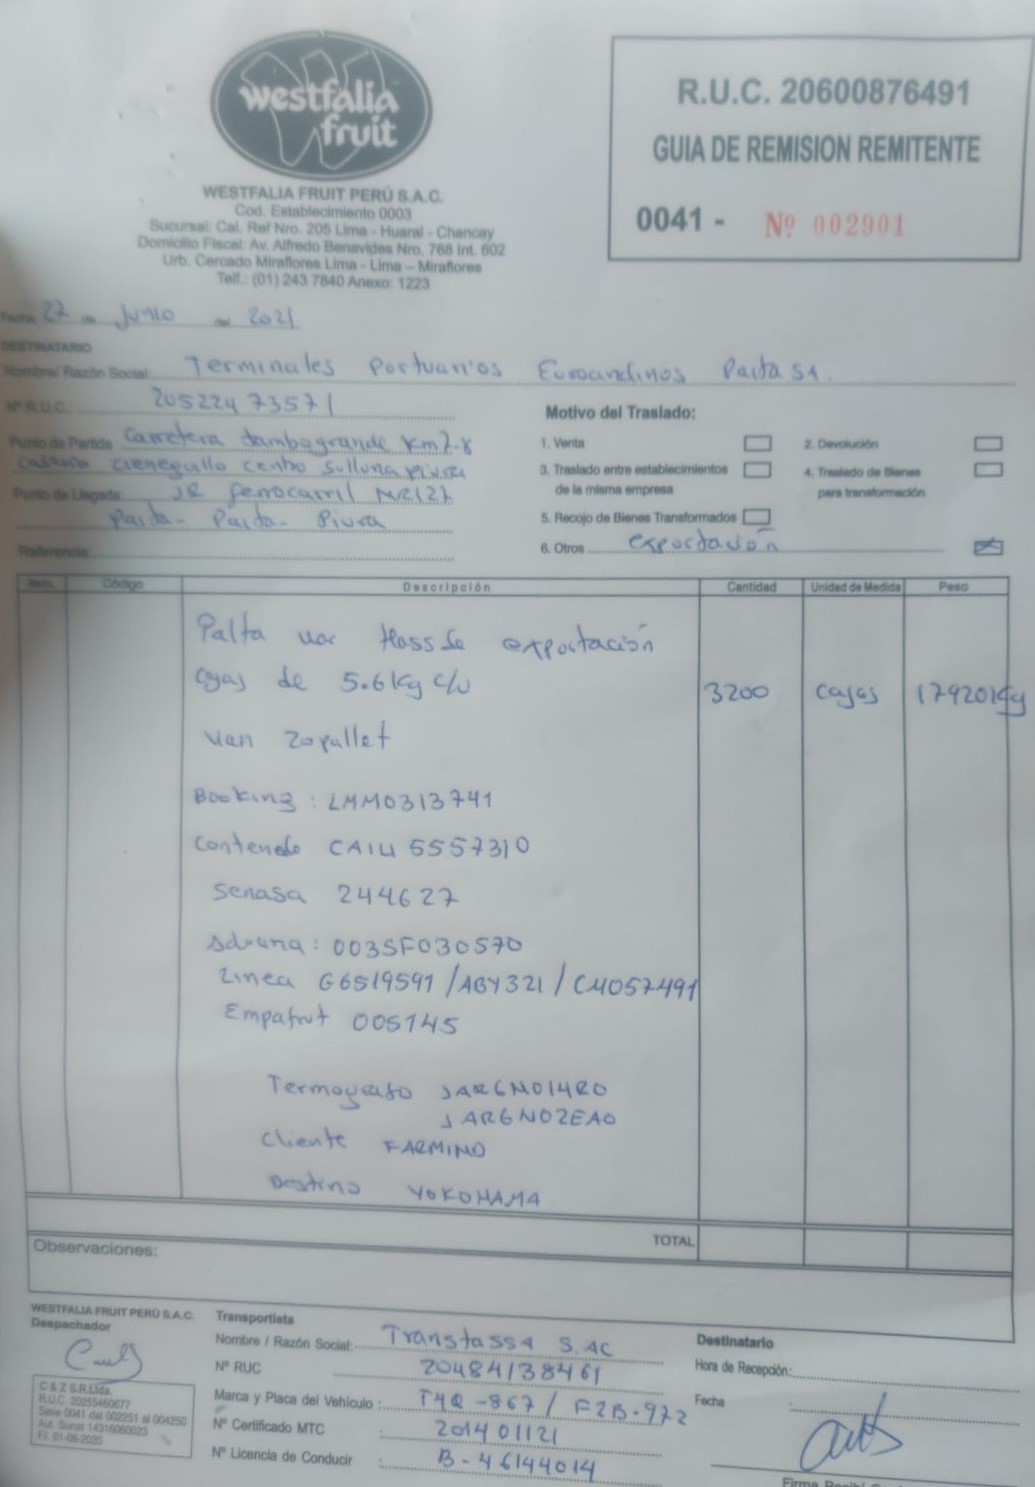 westfalia
fruit
WESTFALIA FRUIT PERÚ S.A.C.
Cod. Establecimiento 0003
Sucursal: Cal. Ref Nro. 205 Lima - Huaral - Chancay
Domicilio Fiscal: Av. Alfredo Benavides Nro. 768 Int. 602
Urb. Cercado Miraflores Lima - Lima – Miraflores
Telf.: (01) 243 7840 Anexo: 1223
R.U.C. 20600876491
GUIA DE REMISION REMITENTE
0041 - Nº 002901
Fecha 27 de Junio del 2021
DESTINATARIO
Nombre/ Razón Social: Terminales Portuarios Euroandinos Paita SA.
Nº R.U.C.: 20522473571
Punto de Partida Carretera tambogrande Km 7.8
caserio cieneguillo centro sullana piura
Punto de Llegada: JR ferrocarril NR127
Paita - Paita - Piura
Referencia:
Motivo del Traslado:
1. Venta
2. Devolución
3. Traslado entre establecimientos
de la misma empresa
4. Traslado de Bienes
para transformación
5. Recojo de Bienes Transformados
6. Otros exportación
Item. Código Descripción Cantidad Unidad de Medida Peso
Palta var Hass de exportación
cajas de 5.6Kg c/u 3200 cajas 17920Kg
van 20 pallet
Booking : LMM0313741
Contenedo CAIU 5557310
Senasa 244627
Aduana : 003SF030570
Linea G6519591 / ABY321 / CM057491
Empafrut 005145
Termografo JAR6N014R0
JAR6N02EA0
Cliente FARMIND
Destino YOKOHAMA
TOTAL
Observaciones:
WESTFALIA FRUIT PERÚ S.A.C.
Despachador
C & Z S.R.Ltda.
R.U.C. 20255460677
Serie 0041 del 002251 al 004250
Aut. Sunat 14316060023
F.I. 01-06-2020
Transportista
Nombre / Razón Social: Transtassa S.AC
Nº RUC 20484138461
Marca y Placa del Vehículo : T4Q-867 / F2B-972
Nº Certificado MTC : 201401121
Nº Licencia de Conducir : B-46144014
Destinatario
Hora de Recepción:
Fecha :
Firma Recibí